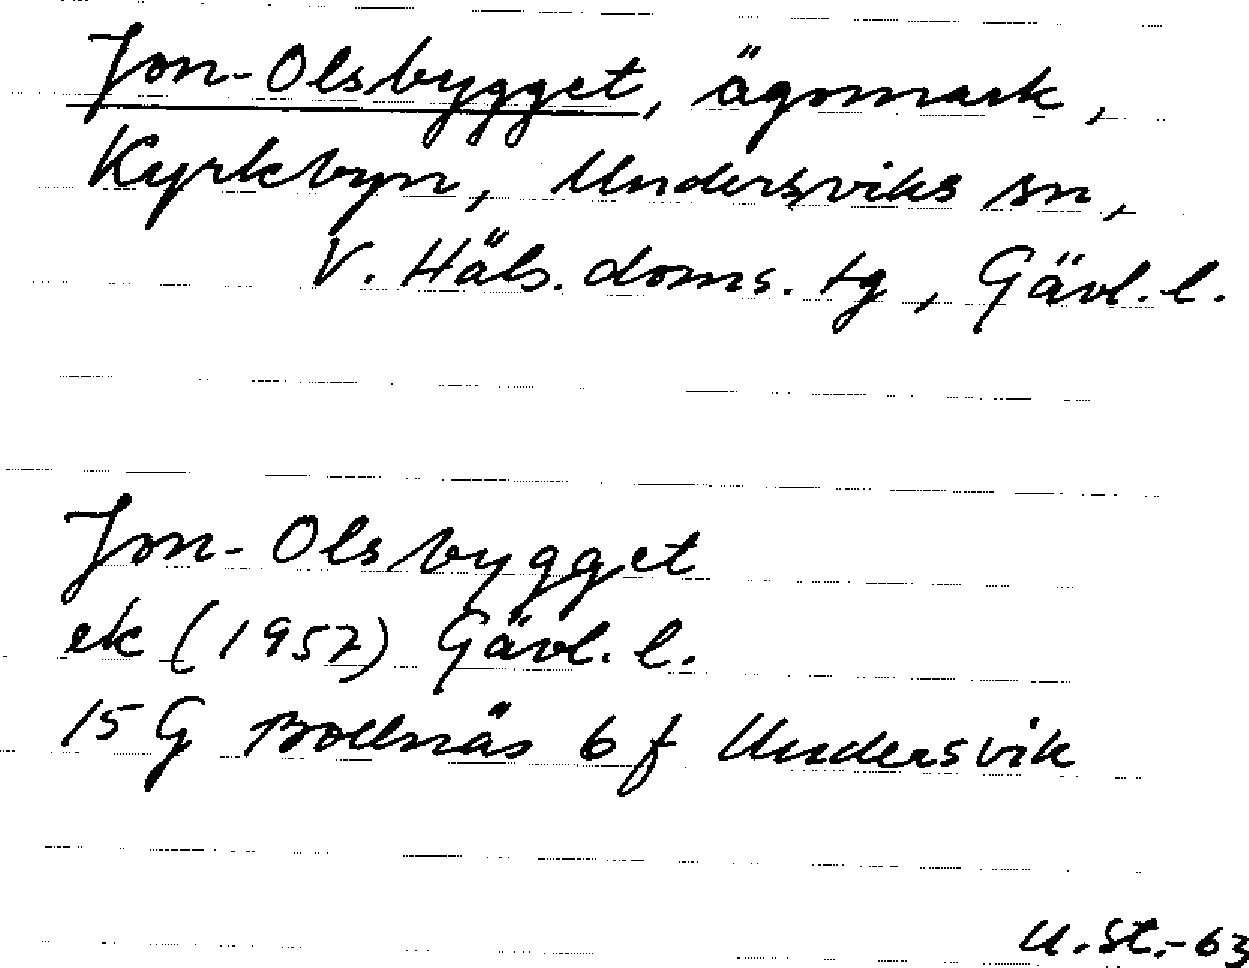 Jon-Olsbygget, ägomark,
Kyrkbyn, Undersviks sn,
V. Häls. doms. tg, Gävl. l.
Jon-Olsbygget
ek (1957) Gävl. l.
15 G Bollnäs 6 f Undersvik
U. St.-63